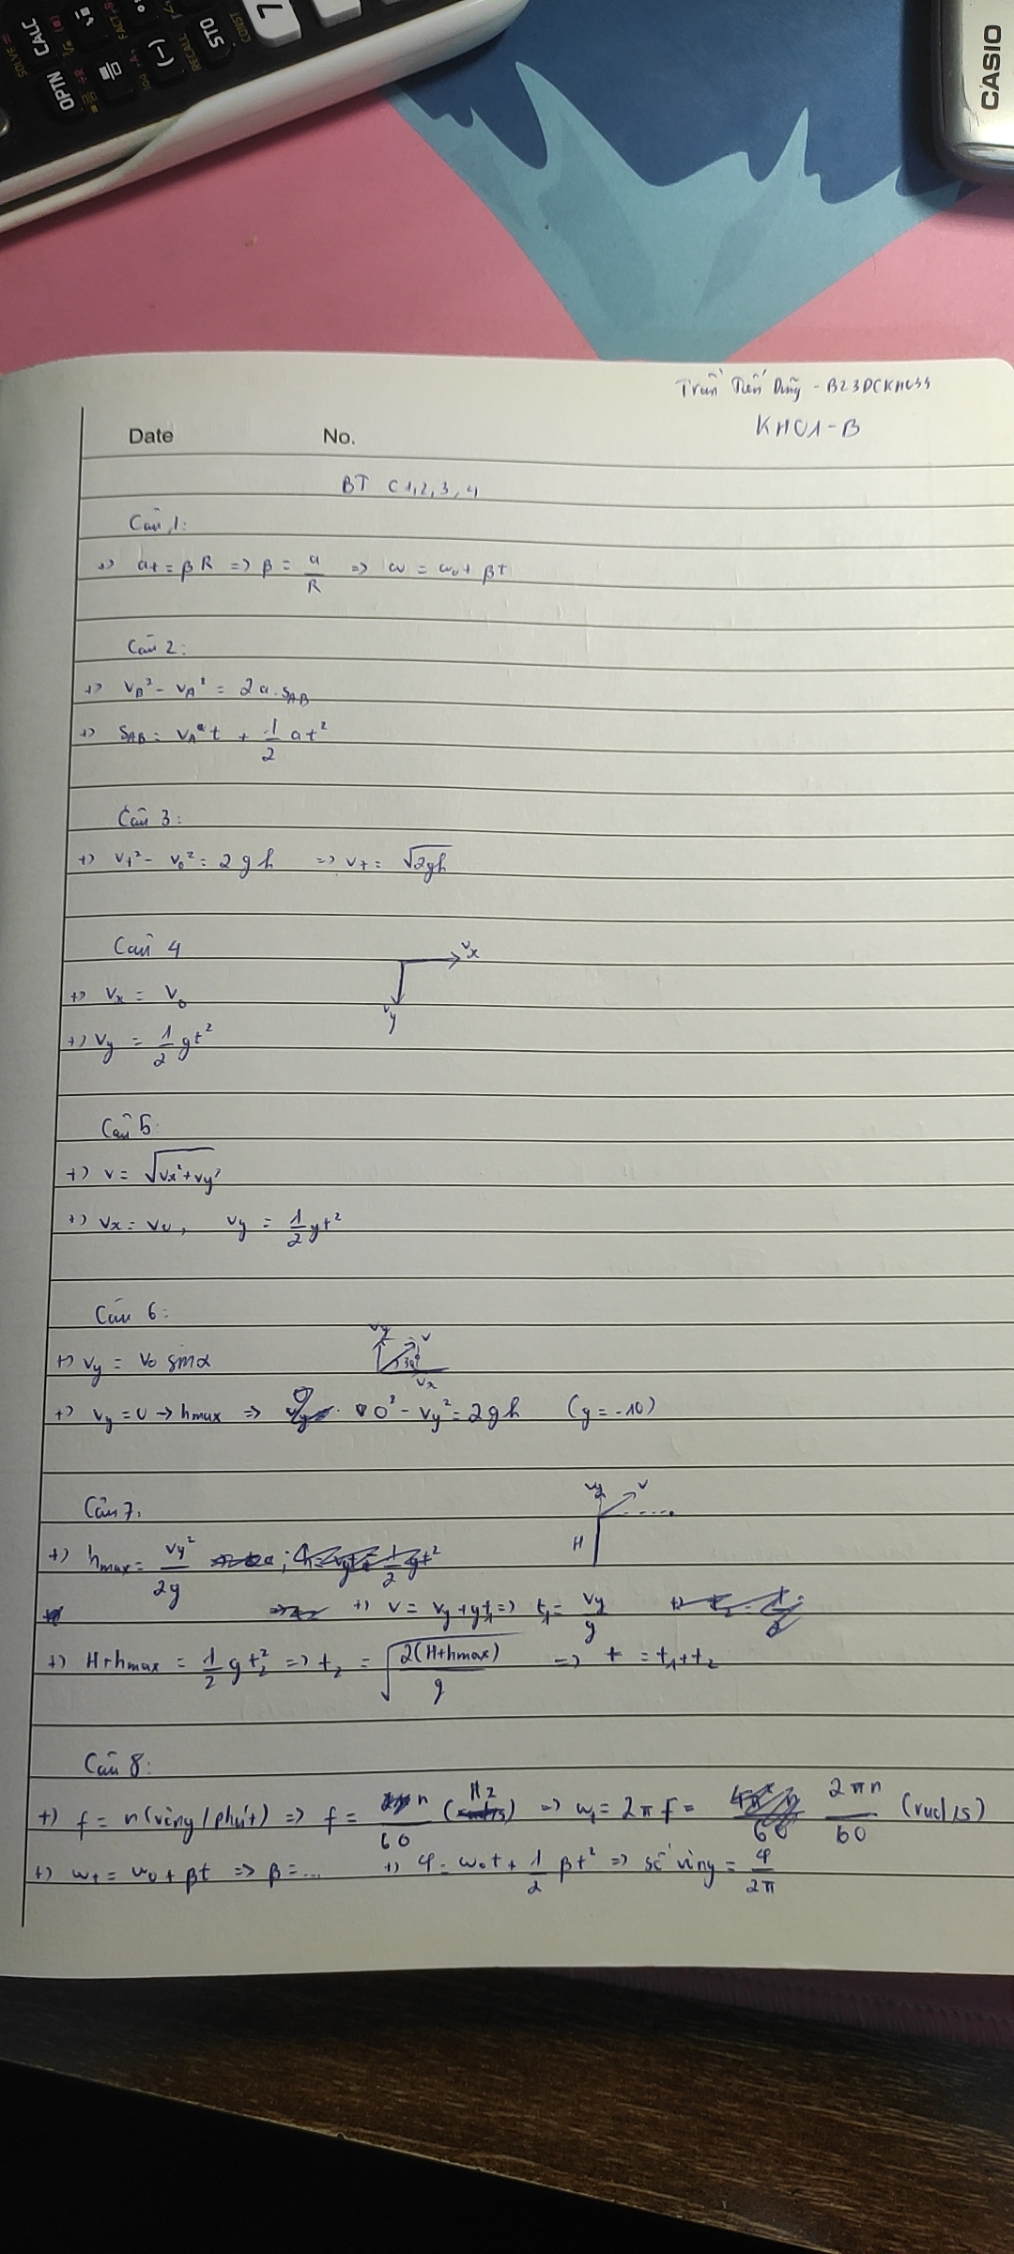 CALC
OPTN
STO
(−)
RECALL
CONST
SOLVE =
7
CASIO
Trần Tiến Dũng - B23DCKH033
KH01-B
Date No.
BT C1,2,3,4
Câu 1:
+) at = βR => β = a/R => ω = ω₀ + βt
Câu 2:
+) v_B² - v_A² = 2a.s_AB
+) s_AB = v_A t + 1/2 at²
Câu 3:
+) v_t² - v₀² = 2gh => v_t = √2gh
Câu 4
v_x
+) v_x = v₀
v_y
+) v_y = 1/2 gt²
Câu 5:
+) v = √(v_x² + v_y²)
+) v_x = v₀, v_y = 1/2 gt²
Câu 6:
v_y v
+) v_y = v₀ sinα
v_x
+) v_y = 0 → hmax => 0² - v_y² = 2gh (g = -10)
Câu 7:
v_y v
H
+) hmax = v_y²/2g
+) v = v_y + gt₁ => t₁ = v_y/g
+) H+hmax = 1/2 g t₂² => t₂ = √(2(H+hmax)/g) => t = t₁+t₂
Câu 8:
+) f = n (vòng/phút) => f = n/60 (Hz) => ω₁ = 2πf = 2πn/60 (rad/s)
+) ω_t = ω₀ + βt => β = ... +) φ = ω₀t + 1/2 βt² => số vòng = φ/2π